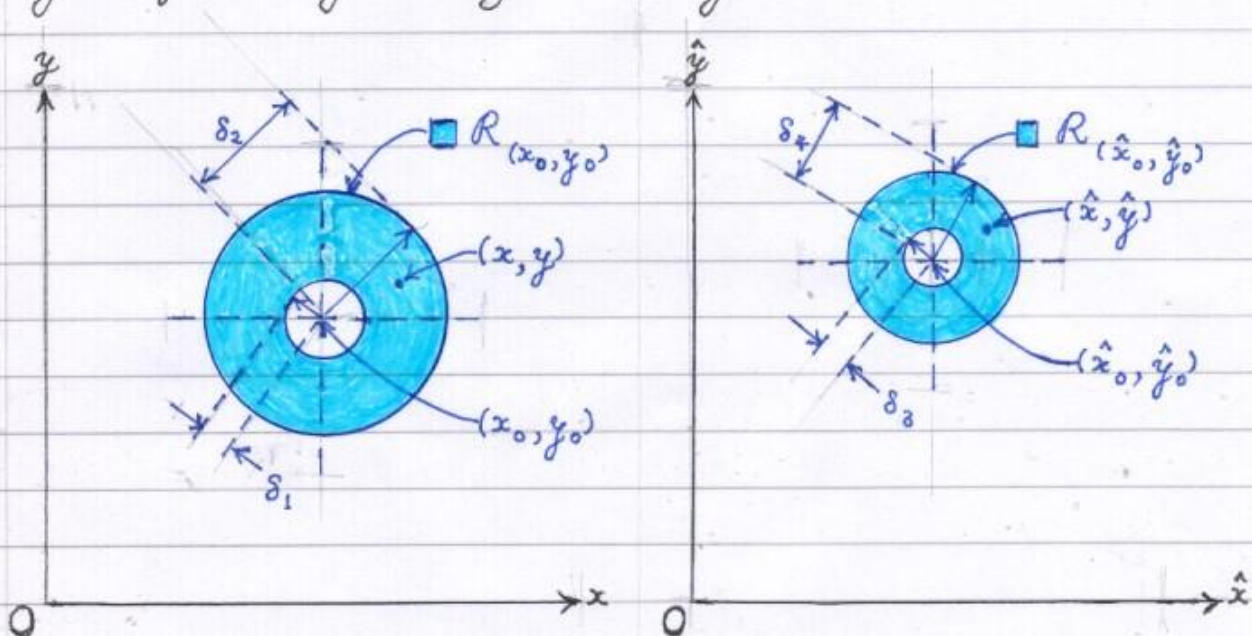 y
δ₂
R(x₀, y₀)
(x, y)
(x₀, y₀)
δ₁
O
x
ŷ
δ₄
R(x̂₀, ŷ₀)
(x̂, ŷ)
(x̂₀, ŷ₀)
δ₃
O
x̂